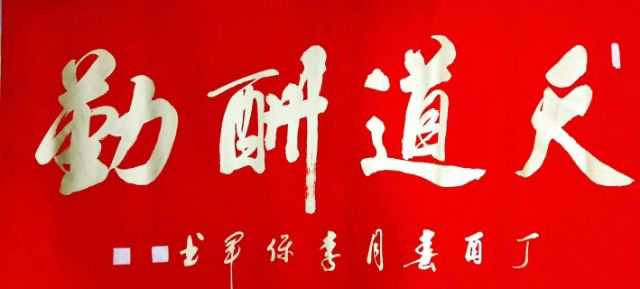 天道酬勤
丁酉春月李保军书